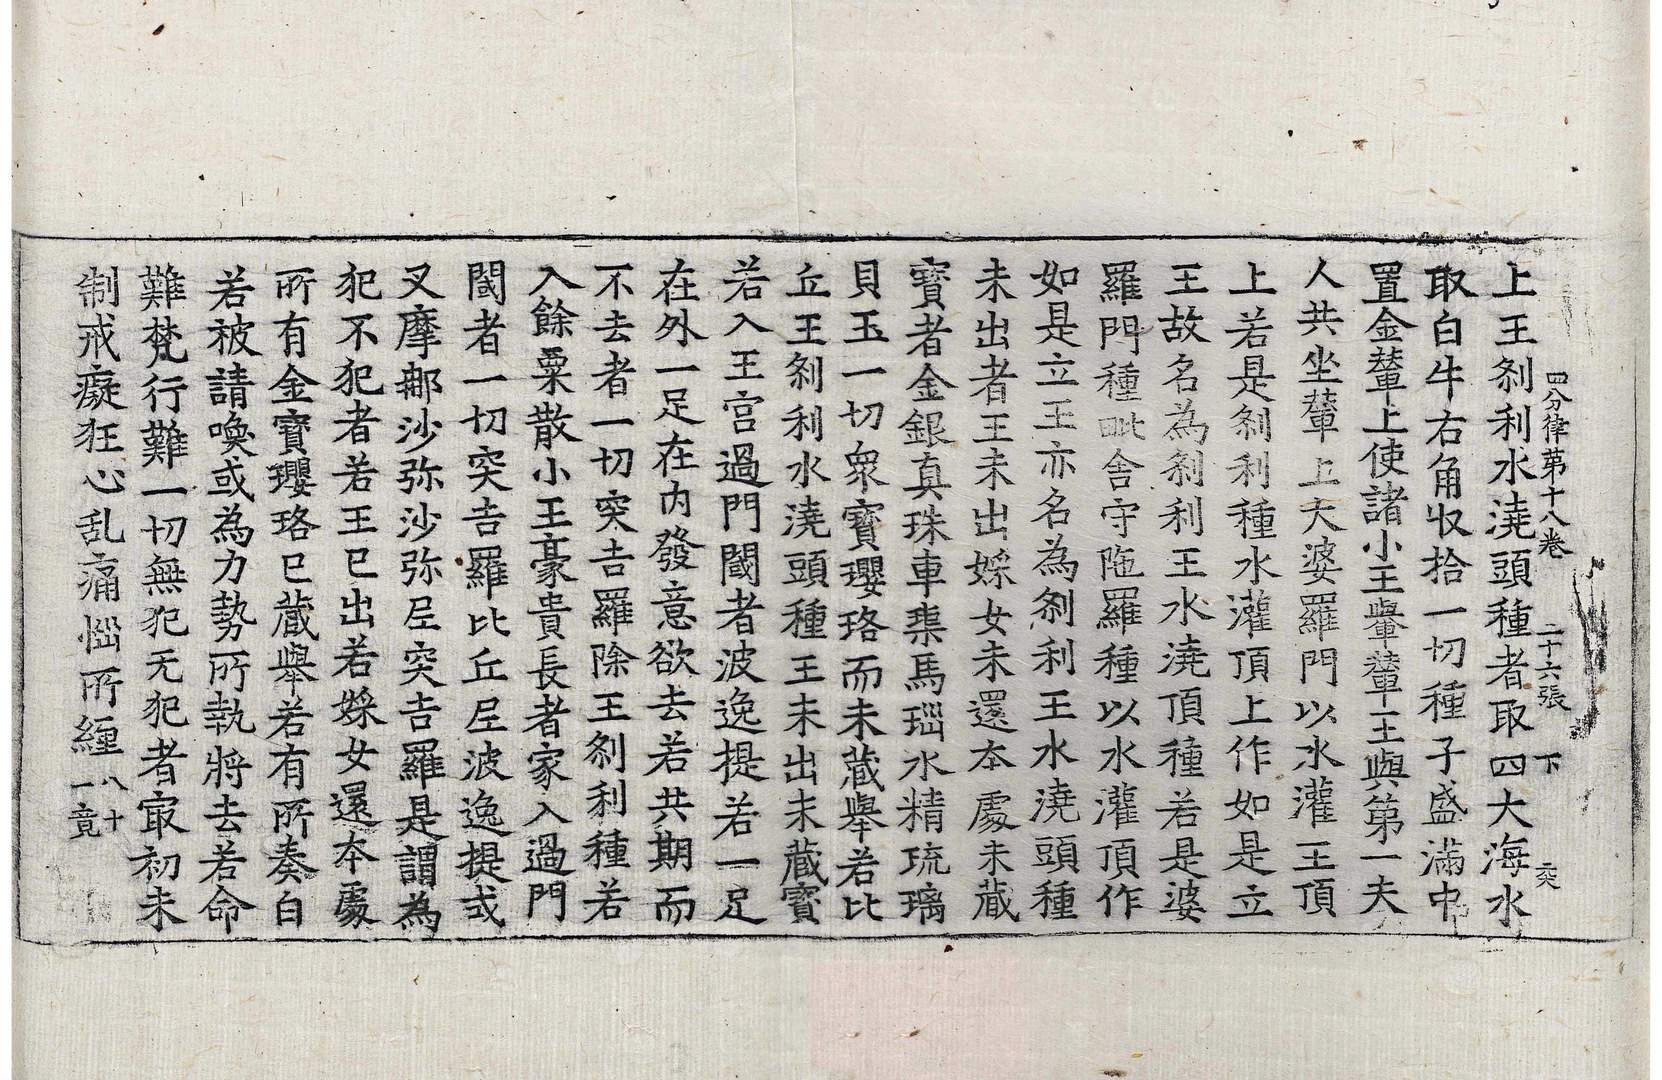 四分律第十八卷 二十六張 下 交
上王刹利水澆頭種者取四大海水
取白牛右角收拾一切種子盛滿中
置金輦上使諸小王轝輦王與第一夫
人共坐輦上大婆羅門以水灌王頂
上若是刹利種水灌頂上作如是立
王故名為刹利王水澆頂種若是婆
羅門種毗舍守陁羅種以水灌頂作
如是立王亦名為刹利王水澆頭種
未出者王未出婇女未還本處未藏
寶者金銀真珠車璖馬瑙水精琉璃
貝玉一切衆寶瓔珞而未藏舉若比
丘王刹利水澆頭種王未出未藏寶
若入王宮過門閾者波逸提若一足
在外一足在內發意欲去若共期而
不去者一切突吉羅除王刹利種若
入餘粟散小王豪貴長者家入過門
閾者一切突吉羅比丘尼波逸提或
叉摩那沙弥沙弥尼突吉羅是謂為
犯不犯者若王已出若婇女還本處
所有金寶瓔珞已藏舉若有所奏白
若被請喚或為力勢所執將去若命
難梵行難一切無犯无犯者㝡初未
制戒癡狂心乱痛惱所纏八十一竟